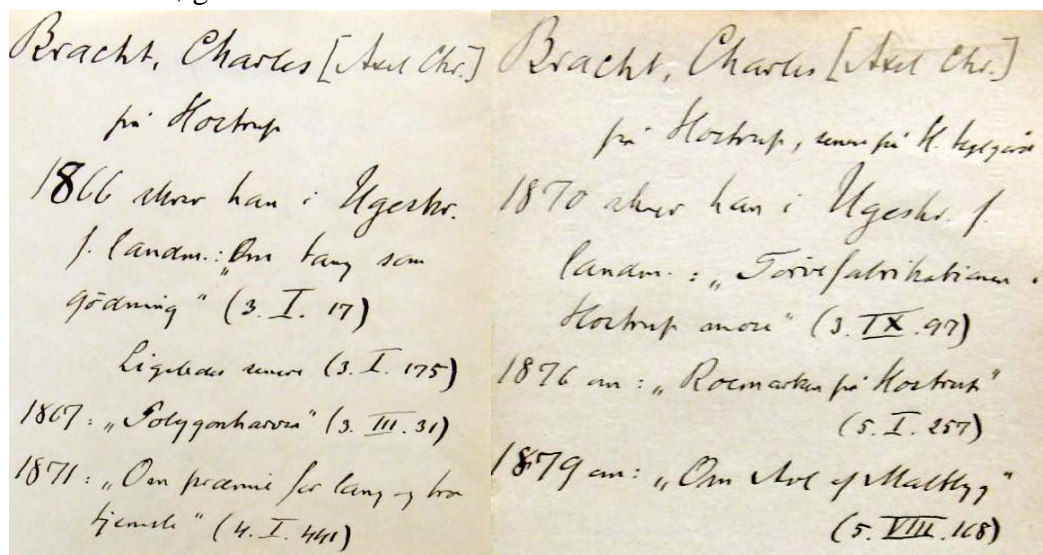 Bracht, Charles [Axel Chr.]
på Hostrup
1866 skrev han i Ugeskr.
f. landm.: „Om tang som
gödning" (3. I. 17)
Ligeledes senere (3. I. 175)
1867: „Polygonharven" (3. III. 31)
1871: „Om præmie for lang og tro
tjeneste" (4. I. 441)
Bracht, Charles [Axel Chr.]
på Hostrup, senere på H.
1870 skrev han i Ugeskr. f.
landm.: „Törvefabrikationen i
Hostrup mose" (3. IX. 97)
1876 om: „Roemarken på Hostrup"
(5. I. 257)
1879 om: „Om Avl af Maltbyg"
(5. VIII. 168)